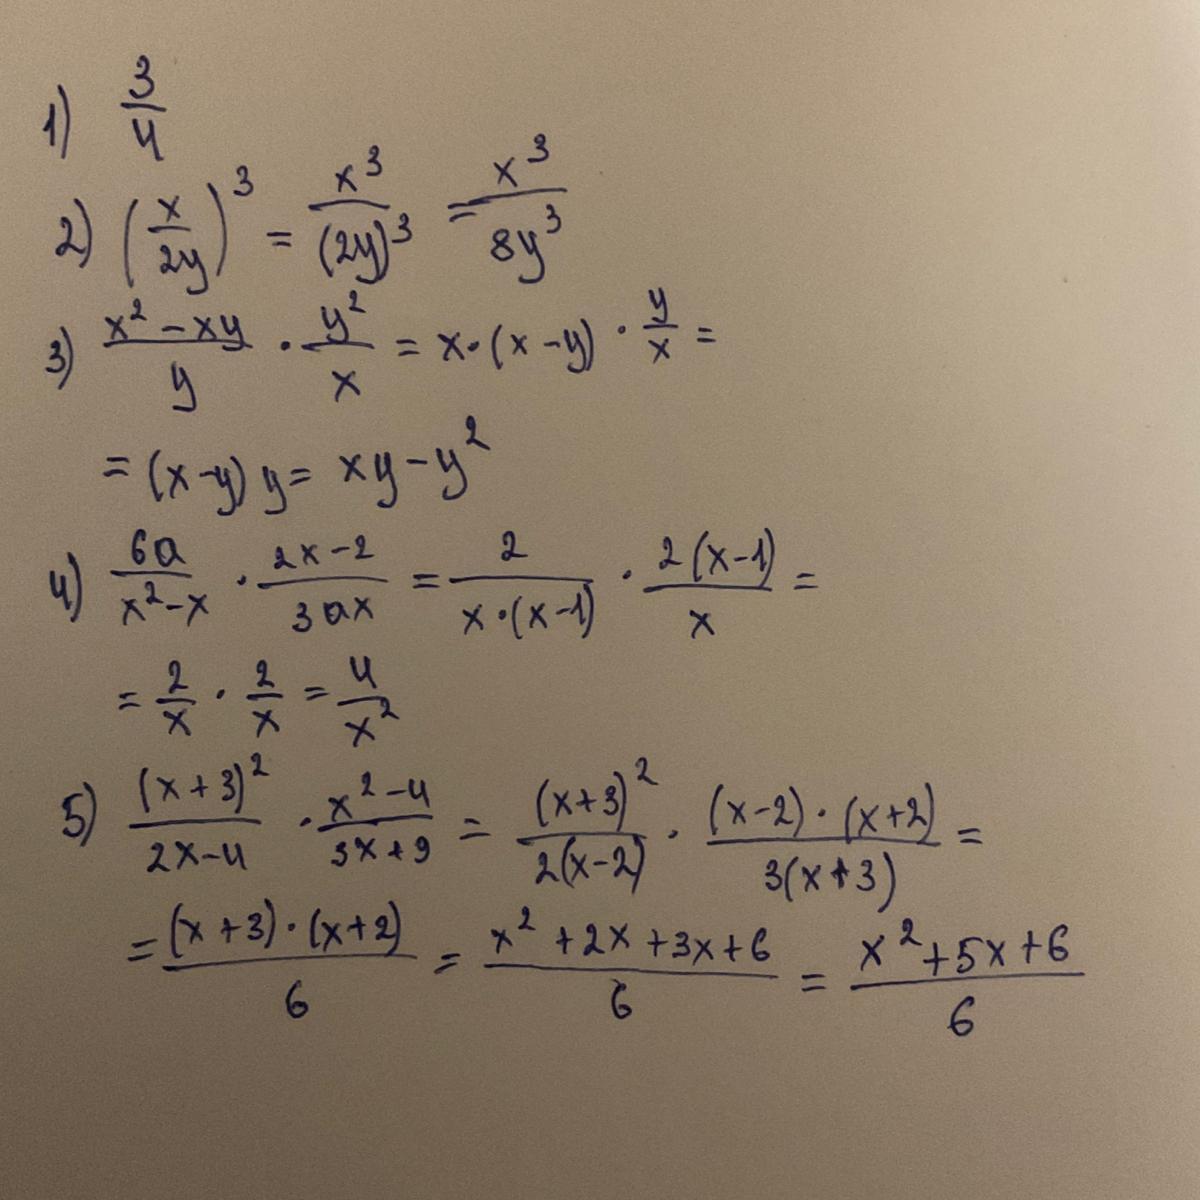 1) 3/4
2) (x/2y)^3 = x^3/(2y)^3 = x^3/8y^3
3) (x^2-xy)/y · y^2/x = x·(x-y) · y/x =
= (x-y) y = xy-y^2
4) 6a/(x^2-x) · (2x-2)/3ax = 2/(x·(x-1)) · 2(x-1)/x =
= 2/x · 2/x = 4/x^2
5) (x+3)^2/(2x-4) · (x^2-4)/(3x+9) = (x+3)^2/(2(x-2)) · (x-2)·(x+2)/(3(x+3)) =
= (x+3)·(x+2)/6 = (x^2+2x+3x+6)/6 = (x^2+5x+6)/6